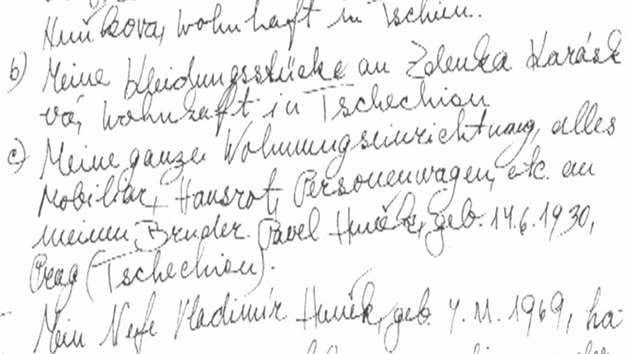 Huňkova, wohnhaft in Tschien.
b) Meine Kleidungsstücke an Zdenka Karásk
vá, wohnhaft in Tschechien
c) Meine ganze Wohnungseinrichtnung, alles
Mobiliar, Hausrat, Personenwagen, etc. an
meinen Bruder Pavel Huněk, geb. 14.6.1930,
Prag (Tschechien).
Mein Neffe Vladimír Huněk, geb. 4.11.1969, ha